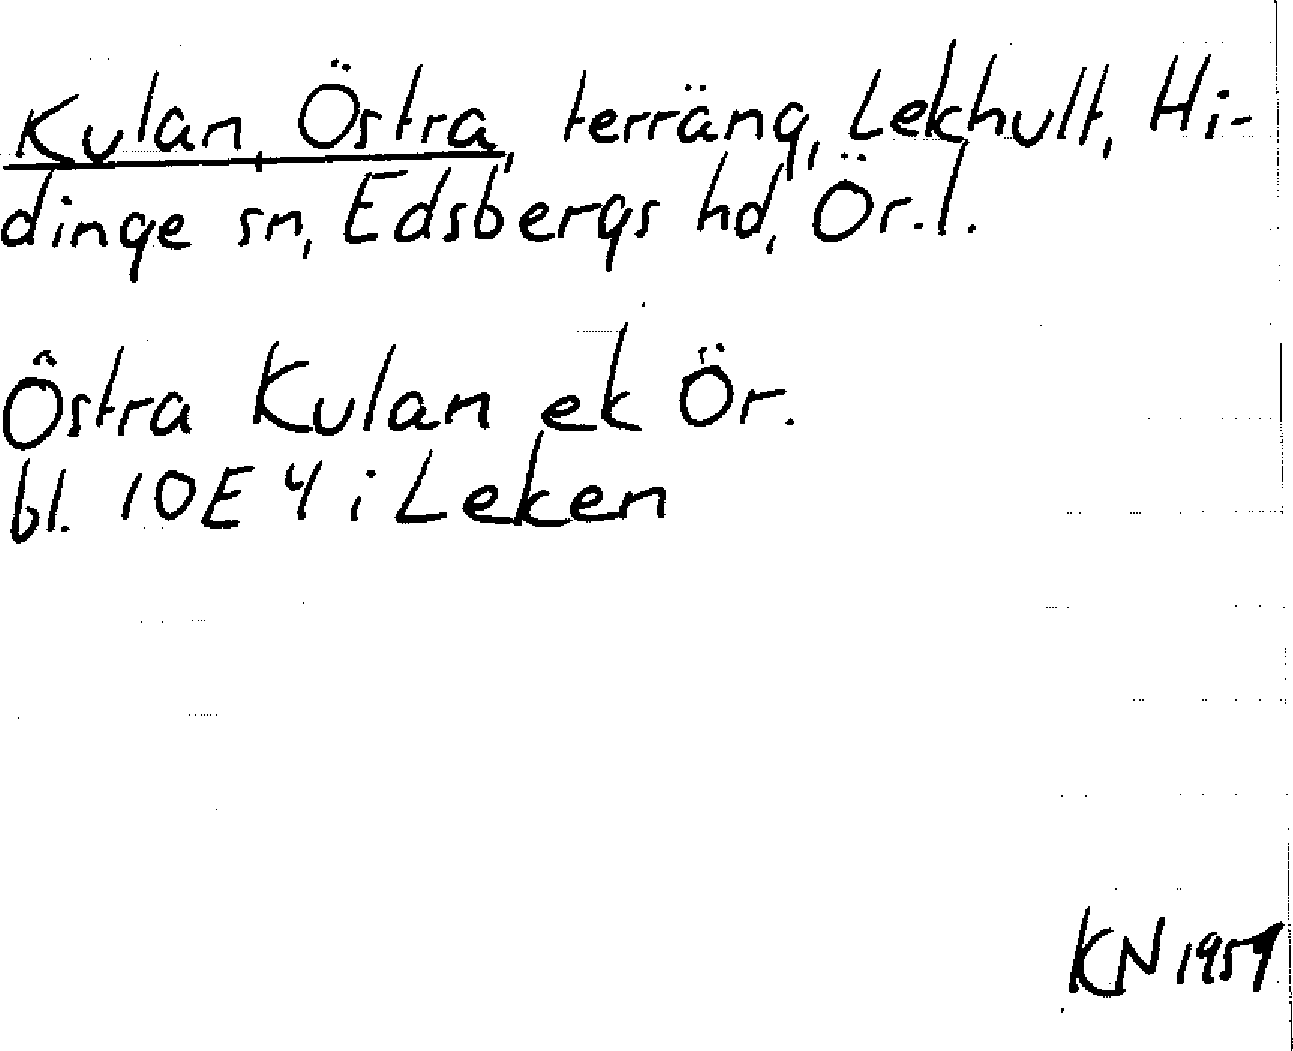 Kulan, Östra, terräng, Lekhult, Hi-
dinge sn, Edsbergs hd, Ör.l.
Östra Kulan ek Ör.
bl. 10E 4 i Leken
KN